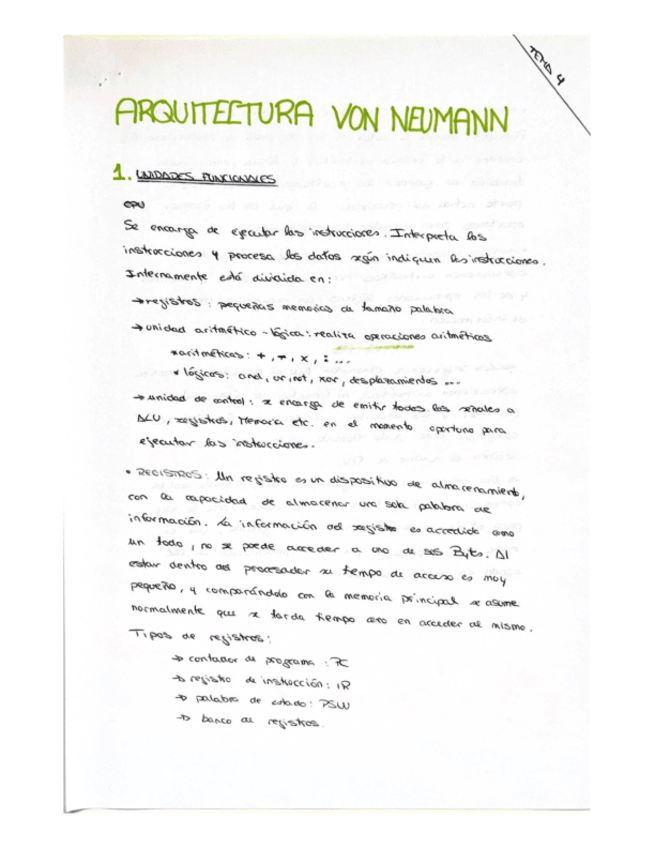 TEMA 4
ARQUITECTURA VON NEUMANN
1. UNIDADES FUNCIONALES
CPU
Se encarga de ejecutar las instrucciones. Interpreta las
instrucciones y procesa los datos según indiquen las instrucciones.
Internamente está dividida en:
→ registros: pequeñas memorias de tamaño palabra
→ unidad aritmético-lógica: realiza operaciones aritméticas
* aritméticas: +, -, x, : ...
* lógicas: and, or, not, xor, desplazamientos ...
→ unidad de control: se encarga de emitir todas las señales a
ALU, registros, Memoria etc. en el momento oportuno para
ejecutar las instrucciones.
• REGISTROS: Un registro es un dispositivo de almacenamiento,
con la capacidad de almacenar una sola palabra de
información. La información del registro es accedida como
un todo, no se puede acceder a uno de sus Bytes. Al
estar dentro del procesador su tiempo de acceso es muy
pequeño, y comparándolo con la memoria principal se asume
normalmente que se tarda tiempo cero en acceder al mismo.
Tipos de registros:
→ contador de programa: PC
→ registro de instrucción: IR
→ palabra de estado: PSW
→ banco de registros.